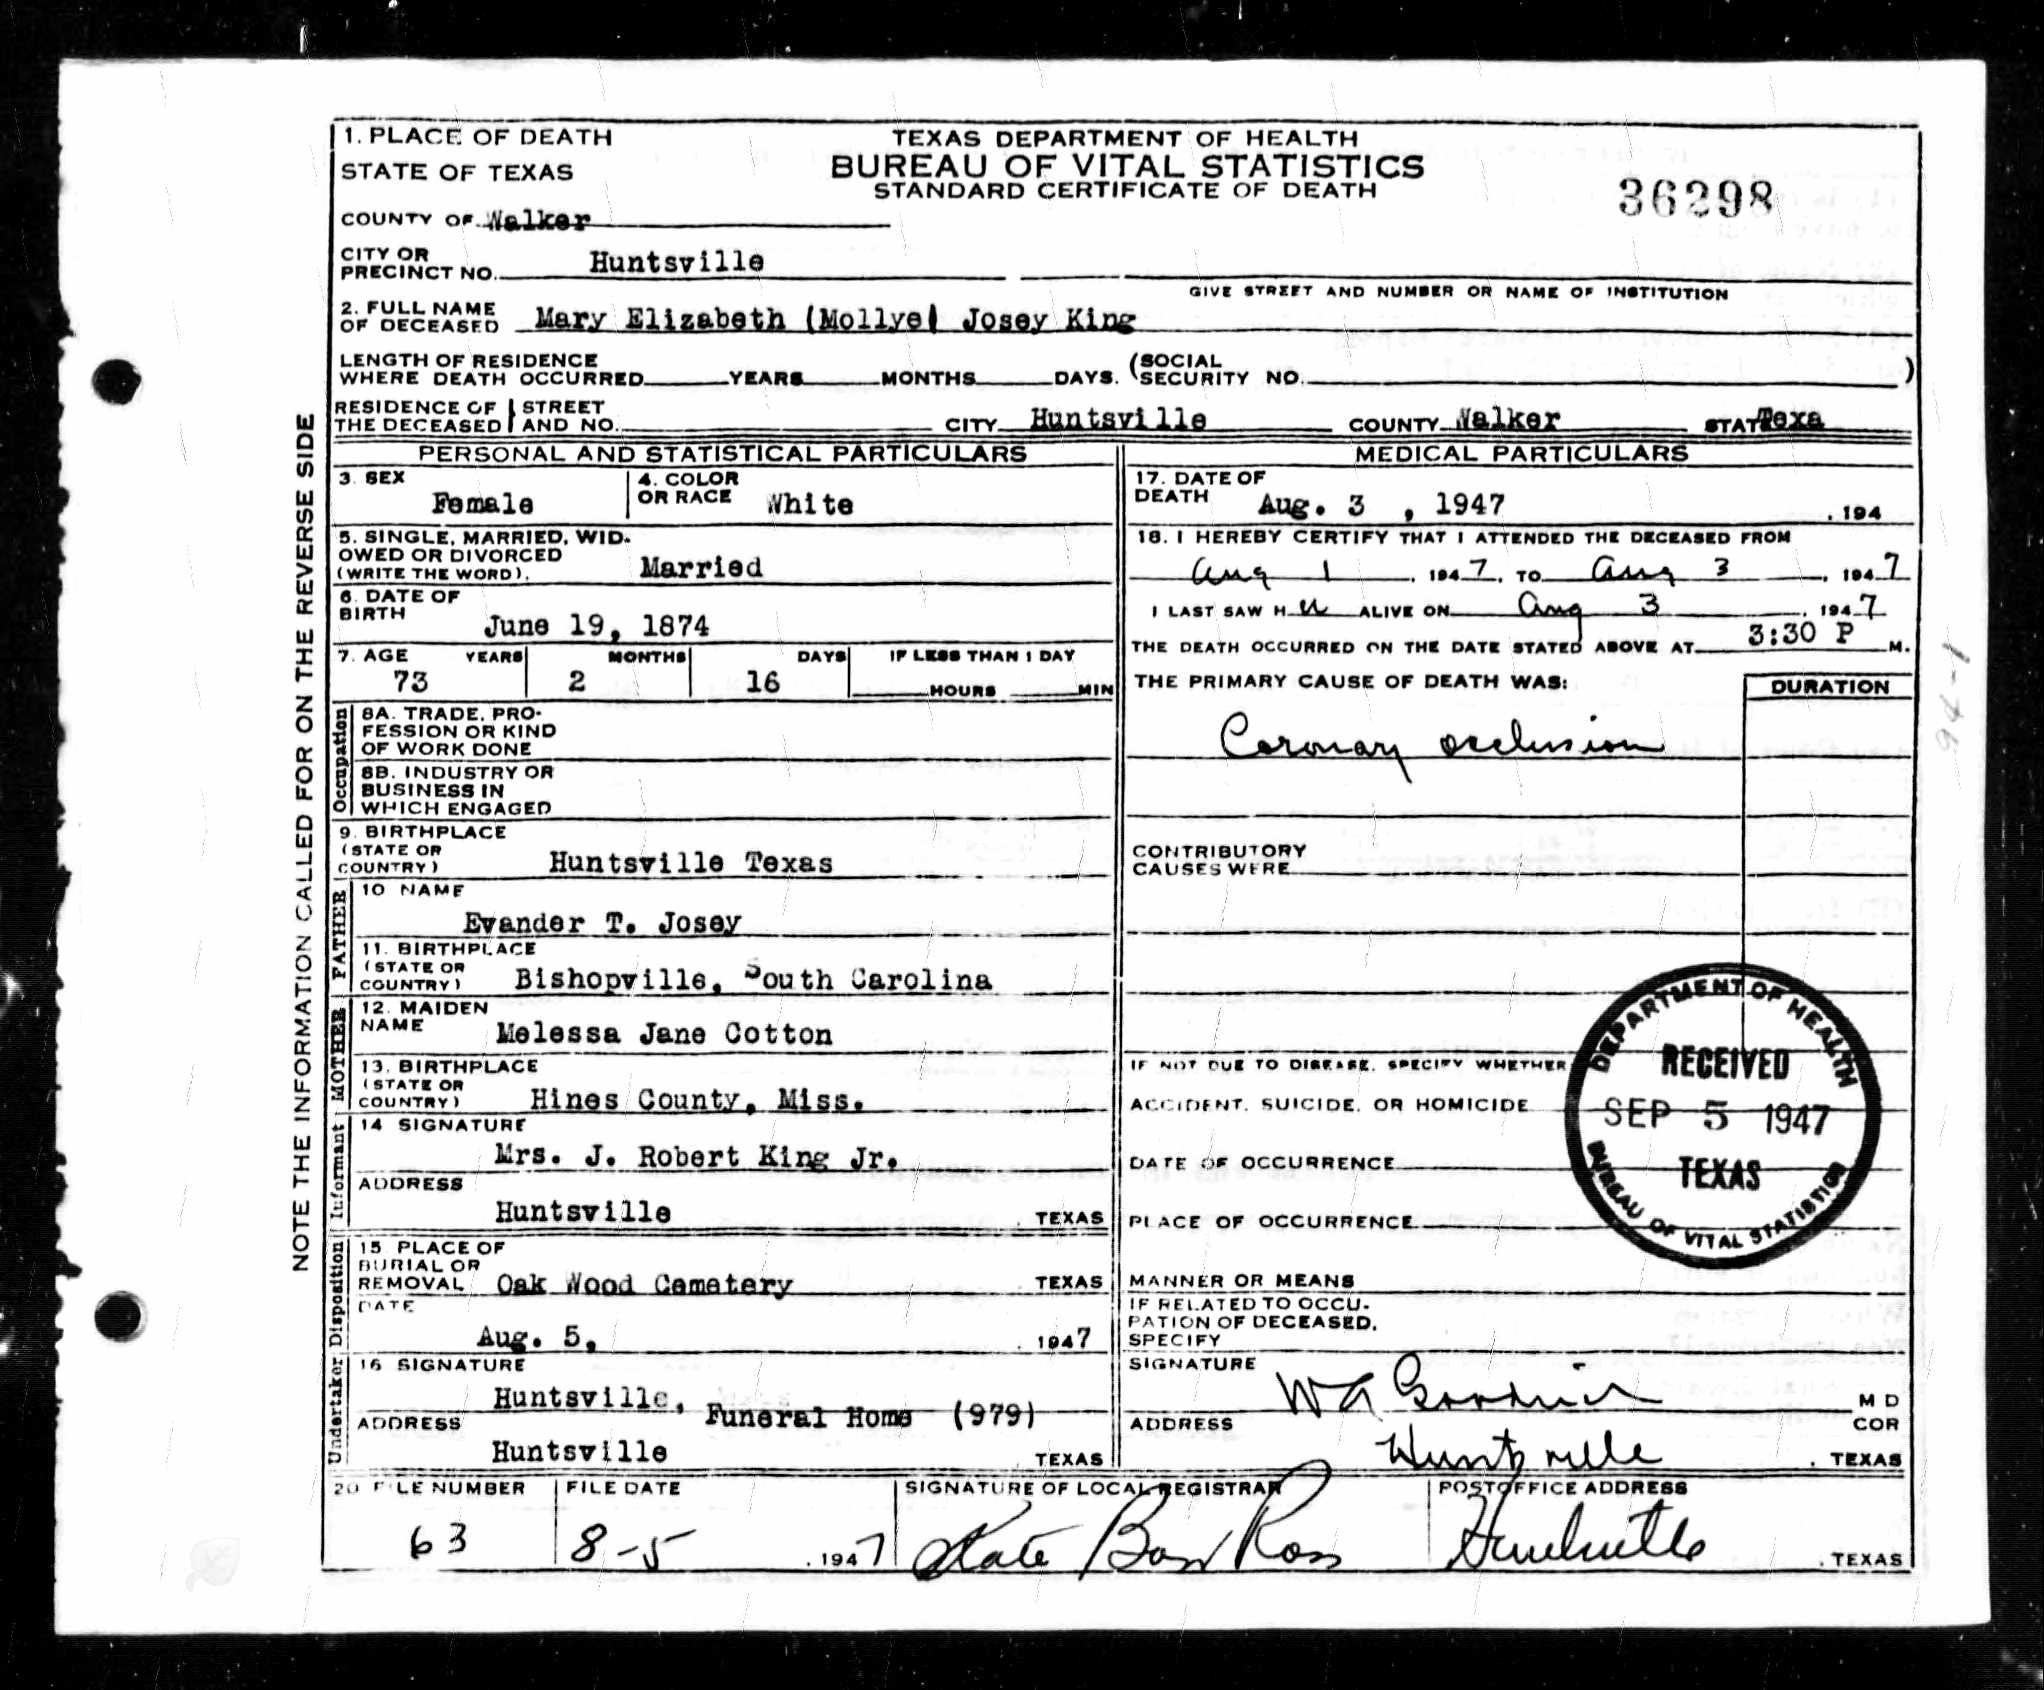 1. PLACE OF DEATH
STATE OF TEXAS
TEXAS DEPARTMENT OF HEALTH
BUREAU OF VITAL STATISTICS
STANDARD CERTIFICATE OF DEATH
36298
COUNTY OF Walker
CITY OR
PRECINCT NO. Huntsville
GIVE STREET AND NUMBER OR NAME OF INSTITUTION
2. FULL NAME
OF DECEASED Mary Elizabeth (Mollye) Josey King
LENGTH OF RESIDENCE
WHERE DEATH OCCURRED YEARS MONTHS DAYS. (SOCIAL
SECURITY NO. )
RESIDENCE OF THE DECEASED STREET AND NO. CITY Huntsville COUNTY Walker STATE Texa
NOTE THE INFORMATION CALLED FOR ON THE REVERSE SIDE
PERSONAL AND STATISTICAL PARTICULARS
3. SEX Female
4. COLOR OR RACE White
5. SINGLE, MARRIED, WID-
OWED OR DIVORCED
(WRITE THE WORD). Married
6. DATE OF
BIRTH June 19, 1874
7. AGE YEARS MONTHS DAYS IF LESS THAN 1 DAY
73 2 16 HOURS MIN
Occupation
8A. TRADE, PRO-
FESSION OR KIND
OF WORK DONE
8B. INDUSTRY OR
BUSINESS IN
WHICH ENGAGED
9. BIRTHPLACE
(STATE OR
COUNTRY) Huntsville Texas
FATHER
10 NAME
Evander T. Josey
11. BIRTHPLACE
(STATE OR
COUNTRY) Bishopville, South Carolina
MOTHER
12. MAIDEN
NAME Melessa Jane Cotton
13. BIRTHPLACE
(STATE OR
COUNTRY) Hines County, Miss.
Informant
14 SIGNATURE
Mrs. J. Robert King Jr.
ADDRESS
Huntsville TEXAS
Disposition
15. PLACE OF
BURIAL OR
REMOVAL Oak Wood Cemetery TEXAS
DATE
Aug. 5, 1947
Undertaker
16 SIGNATURE
Huntsville, Funeral Home (979)
ADDRESS
Huntsville TEXAS
MEDICAL PARTICULARS
17. DATE OF
DEATH Aug. 3 , 1947 , 194
18. I HEREBY CERTIFY THAT I ATTENDED THE DECEASED FROM
Aug 1 , 1947, TO Aug 3 , 1947
I LAST SAW H er ALIVE ON Aug 3 , 1947
THE DEATH OCCURRED ON THE DATE STATED ABOVE AT 3:30 P M.
THE PRIMARY CAUSE OF DEATH WAS: DURATION
94-1
Coronary occlusion
CONTRIBUTORY
CAUSES WERE
IF NOT DUE TO DISEASE, SPECIFY WHETHER
ACCIDENT, SUICIDE, OR HOMICIDE
DATE OF OCCURRENCE
PLACE OF OCCURRENCE
DEPARTMENT OF HEALTH
RECEIVED
SEP 5 1947
TEXAS
BUREAU OF VITAL STATISTICS
MANNER OR MEANS
IF RELATED TO OCCU-
PATION OF DECEASED,
SPECIFY
SIGNATURE
W A M D
COR
ADDRESS
Huntsville , TEXAS
20 FILE NUMBER FILE DATE SIGNATURE OF LOCAL REGISTRAR POSTOFFICE ADDRESS
63 8-5 , 1947 Kate Ross Huntsville , TEXAS